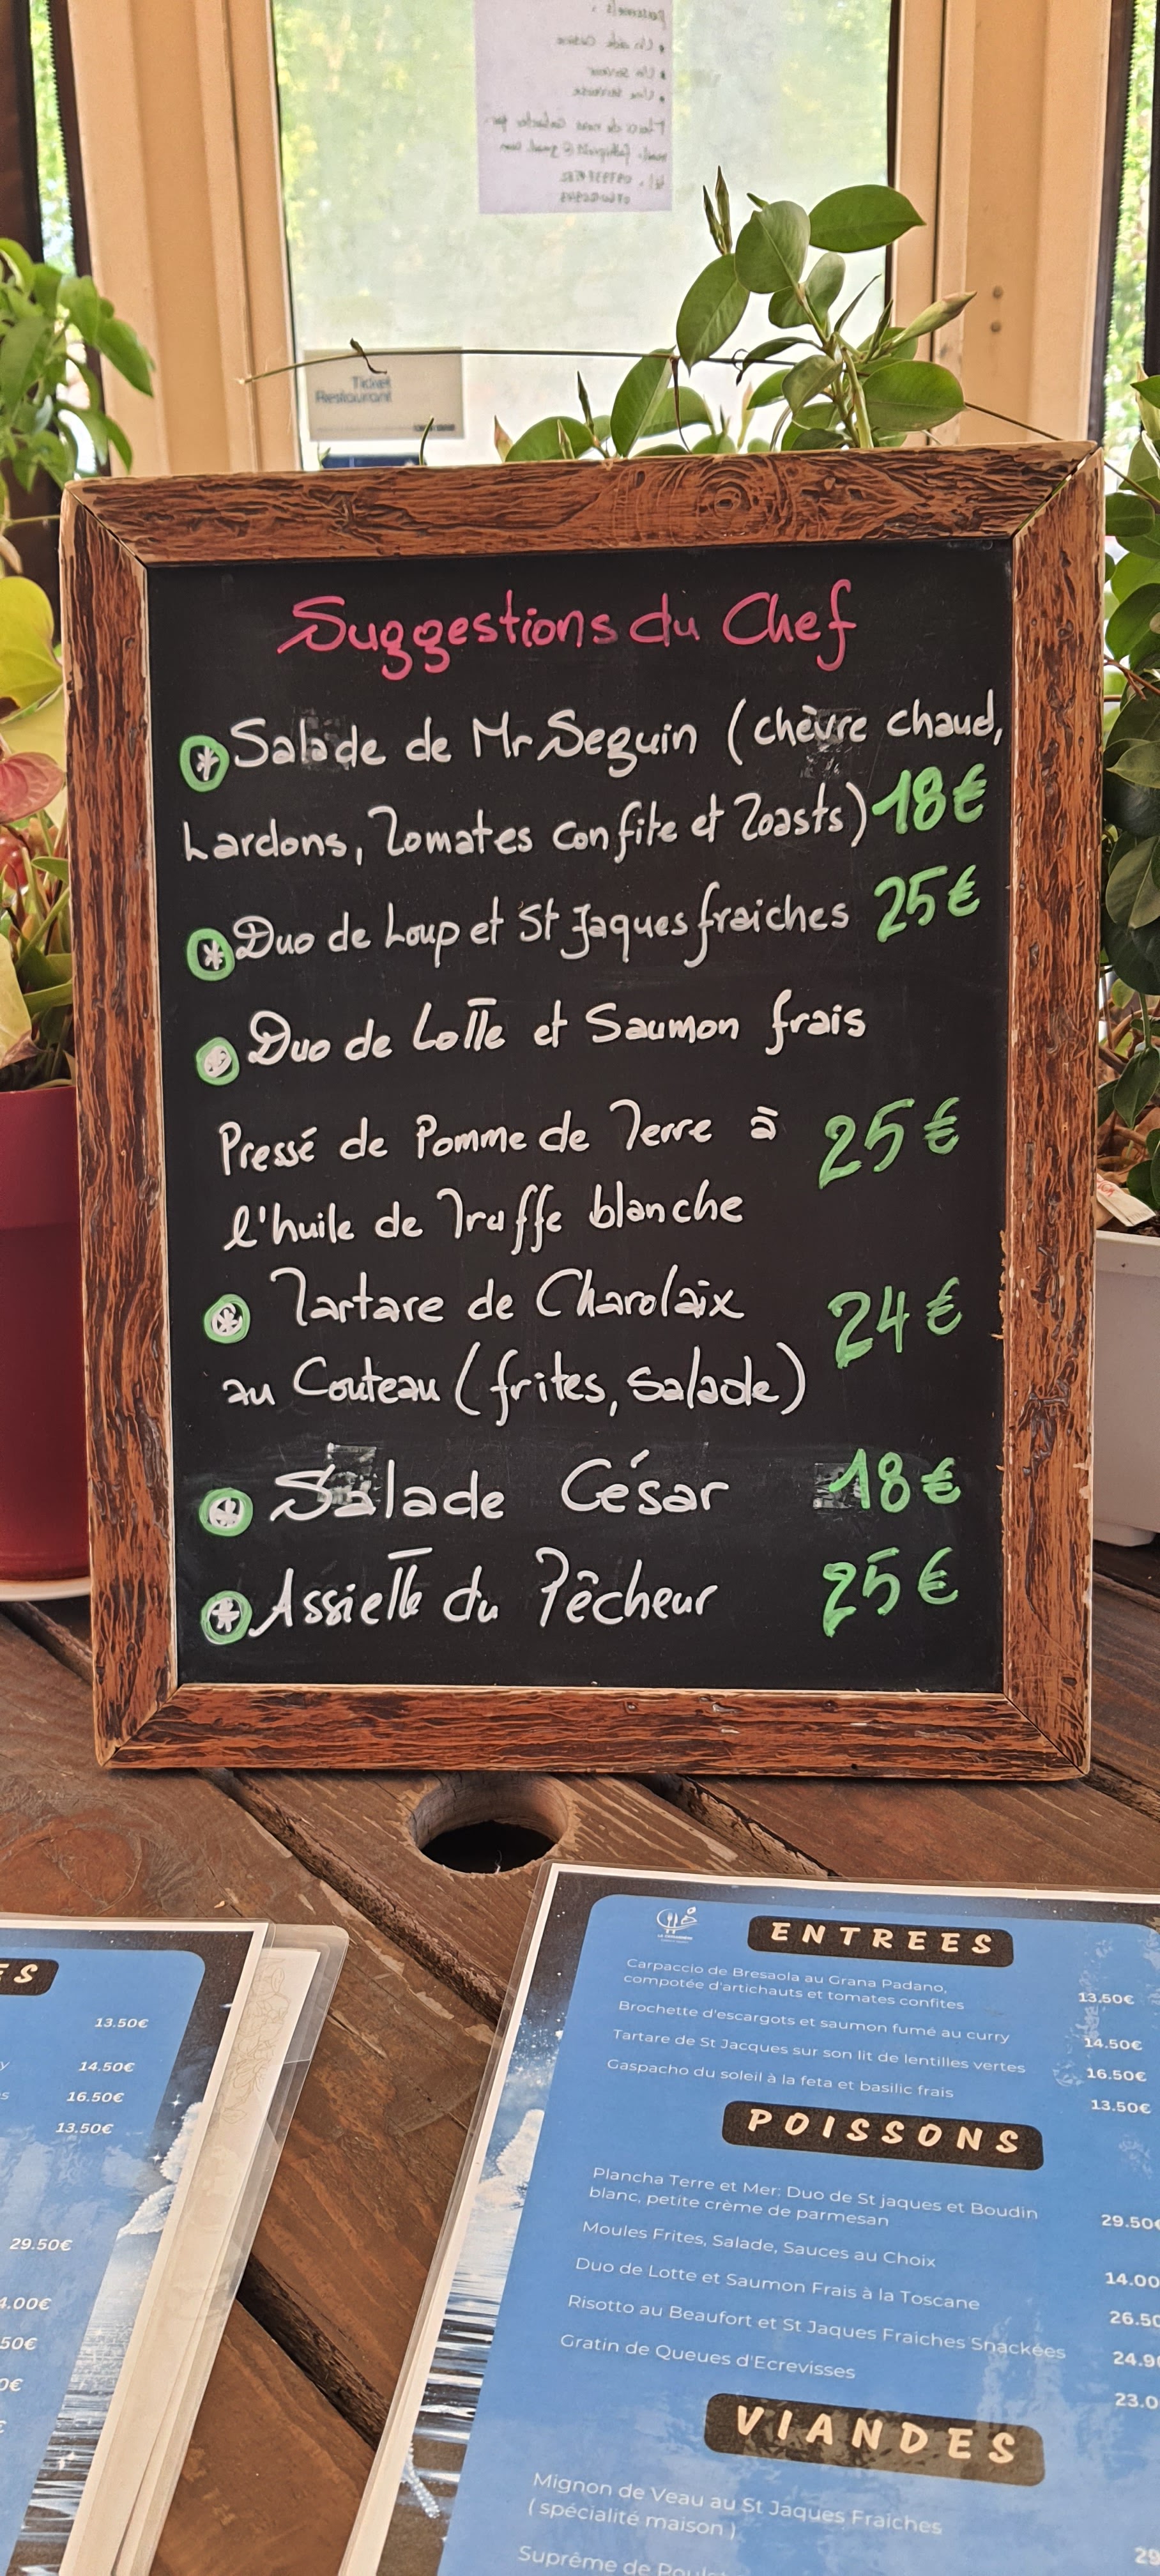 Ticket
Restaurant
Suggestions du Chef
Salade de Mr Seguin (chèvre chaud,
Lardons, Tomates confite et Toasts) 18€
Duo de Loup et St Jaques fraiches 25€
Duo de Lotte et Saumon frais
Pressé de Pomme de Terre à 25€
l'huile de Truffe blanche
Tartare de Charolaix 24€
au Couteau (frites, salade)
Salade César 18€
Assiette du Pêcheur 25€
ES
13.50€
14.50€
16.50€
13.50€
29.50€
ENTREES
Carpaccio de Bresaola au Grana Padano,
compotée d'artichauts et tomates confites 13.50€
Brochette d'escargots et saumon fumé au curry 14.50€
Tartare de St Jacques sur son lit de lentilles vertes 16.50€
Gaspacho du soleil à la feta et basilic frais 13.50€
POISSONS
Plancha Terre et Mer: Duo de St jaques et Boudin
blanc, petite crème de parmesan 29.50€
Moules Frites, Salade, Sauces au Choix 14.00
Duo de Lotte et Saumon Frais à la Toscane 26.50
Risotto au Beaufort et St Jaques Fraiches Snackées 24.9
Gratin de Queues d'Ecrevisses 23.0
VIANDES
Mignon de Veau au St Jaques Fraiches
( spécialité maison )
Suprême de